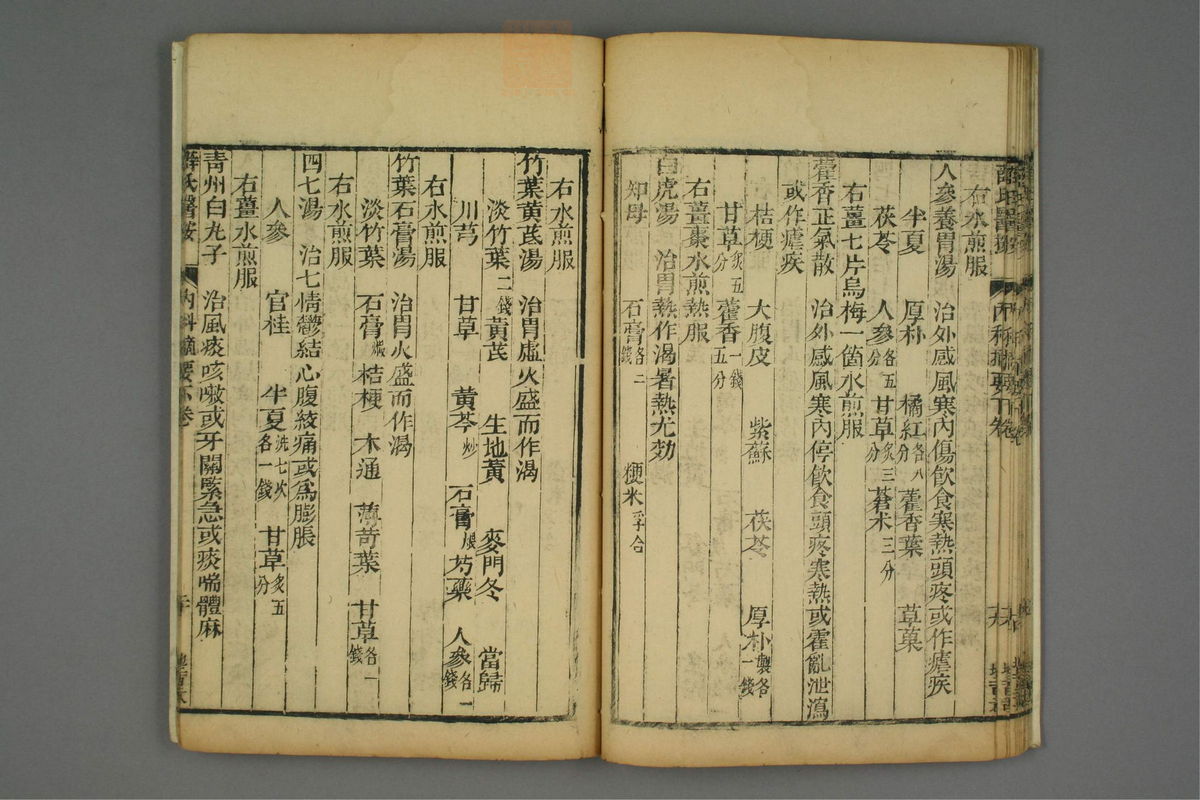 右水煎服
人參養胃湯 治外感風寒內傷飲食寒熱頭疼或作瘧疾
半夏 厚朴 橘紅各八分 藿香葉 草菓
茯苓 人參各五分 甘草炙三分 蒼朮三分
右薑七片烏梅一箇水煎服
藿香正氣散 治外感風寒內停飲食頭疼寒熱或霍亂泄瀉
或作瘧疾
桔梗 大腹皮 紫蘇 茯苓 厚朴製各一錢
甘草炙五分 藿香一錢五分
右薑棗水煎熱服
白虎湯 治胃熱作渴暑熱尤効
知母 石膏各二錢 粳米半合
右水煎服
竹葉黃芪湯 治胃虛火盛而作渴
淡竹葉二錢 黃芪 生地黃 麥門冬 當歸
川芎 甘草 黃芩炒 石膏煅 芍藥 人參各一錢
右水煎服
竹葉石膏湯 治胃火盛而作渴
淡竹葉 石膏煅 桔梗 木通 薄苛葉 甘草各一錢
右水煎服
四七湯 治七情鬱結心腹絞痛或為膨脹
人參 官桂 半夏洗七次各一錢 甘草炙五分
右薑水煎服
青州白丸子 治風痰咳嗽或牙關緊急或痰喘體麻
薛氏醫按 內科摘要下卷